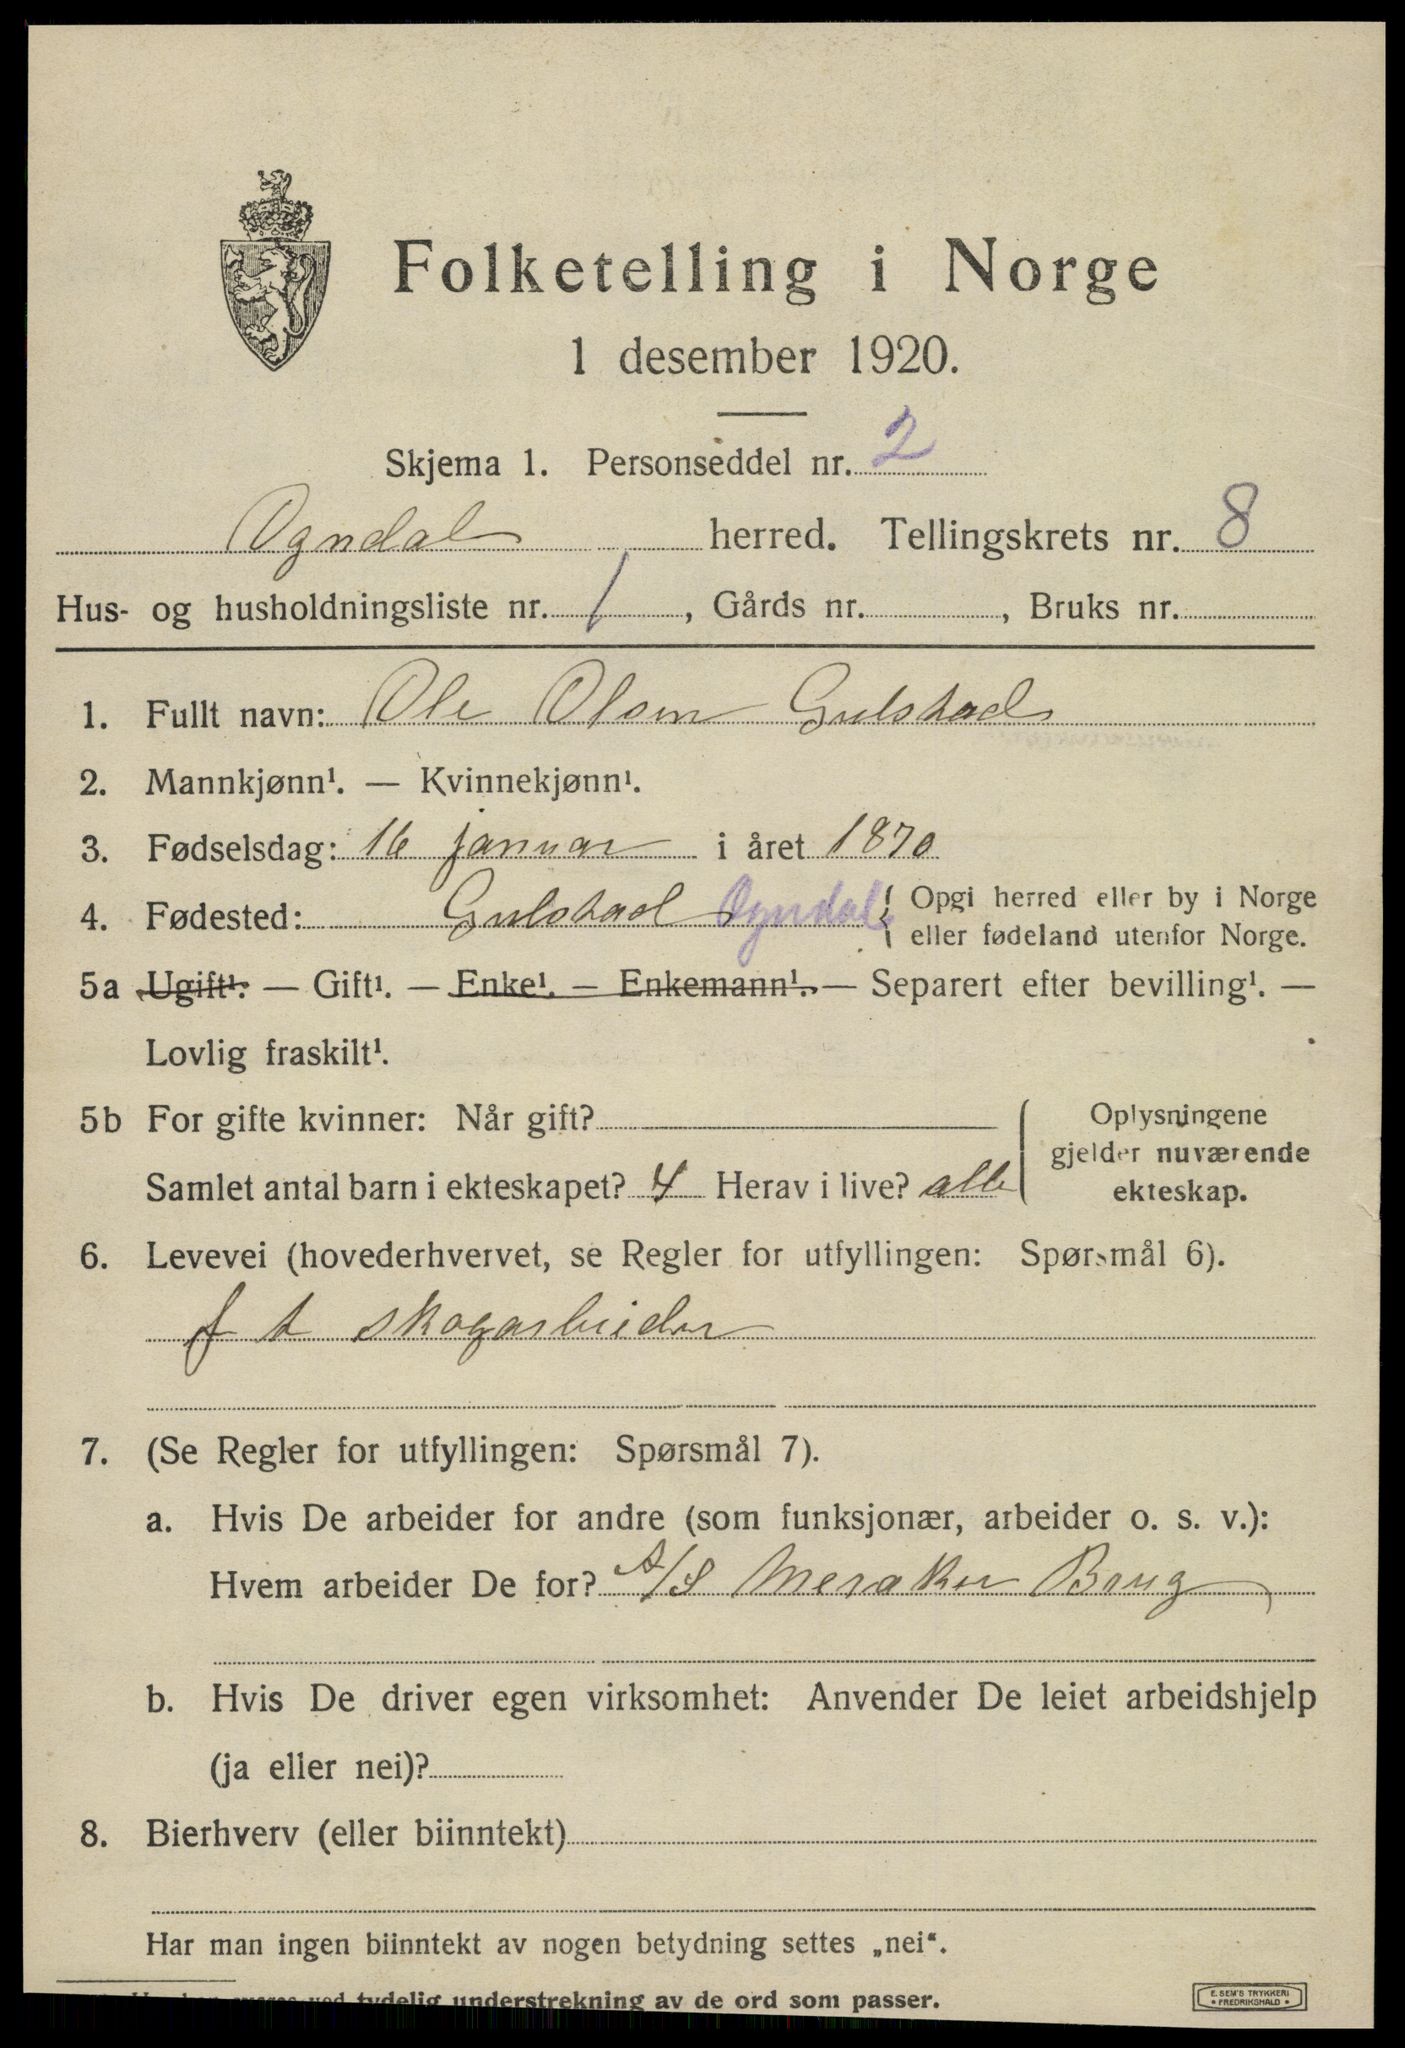 Folketelling i Norge
1 desember 1920.
Skjema 1. Personseddel nr. 2
Ogndal herred. Tellingskrets nr. 8
Hus- og husholdningsliste nr. 1, Gårds nr. , Bruks nr.
1. Fullt navn: Ole Olsen Gulstad
2. Mannkjønn¹. — Kvinnekjønn¹.
3. Fødselsdag: 16 januar i året 1870
4. Fødested: Gulstad Ogndal { Opgi herred eller by i Norge
eller fødeland utenfor Norge.
5a Ugift¹. — Gift¹. — Enke¹. — Enkemann¹. — Separert efter bevilling¹. —
Lovlig fraskilt¹.
5b For gifte kvinner: Når gift?
Samlet antal barn i ekteskapet? 4 Herav i live? alle
Oplysningene
gjelder nuværende
ekteskap.
6. Levevei (hovederhvervet, se Regler for utfyllingen: Spørsmål 6).
f t skogarbeider
7. (Se Regler for utfyllingen: Spørsmål 7).
a. Hvis De arbeider for andre (som funksjonær, arbeider o. s. v.):
Hvem arbeider De for? A/S Meraker Brug
b. Hvis De driver egen virksomhet: Anvender De leiet arbeidshjelp
(ja eller nei)?
8. Bierhverv (eller biinntekt)
Har man ingen biinntekt av nogen betydning settes „nei“.
ved tydelig understrekning av de ord som passer.
E. SEM'S TRYKKERI
• FREDRIKSHALD •